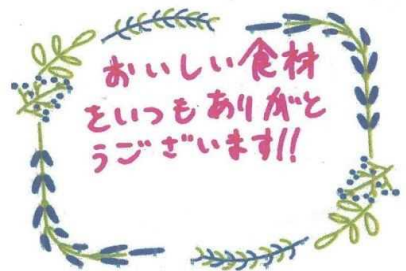 おいしい食材
をいつもありがと
うございます!!